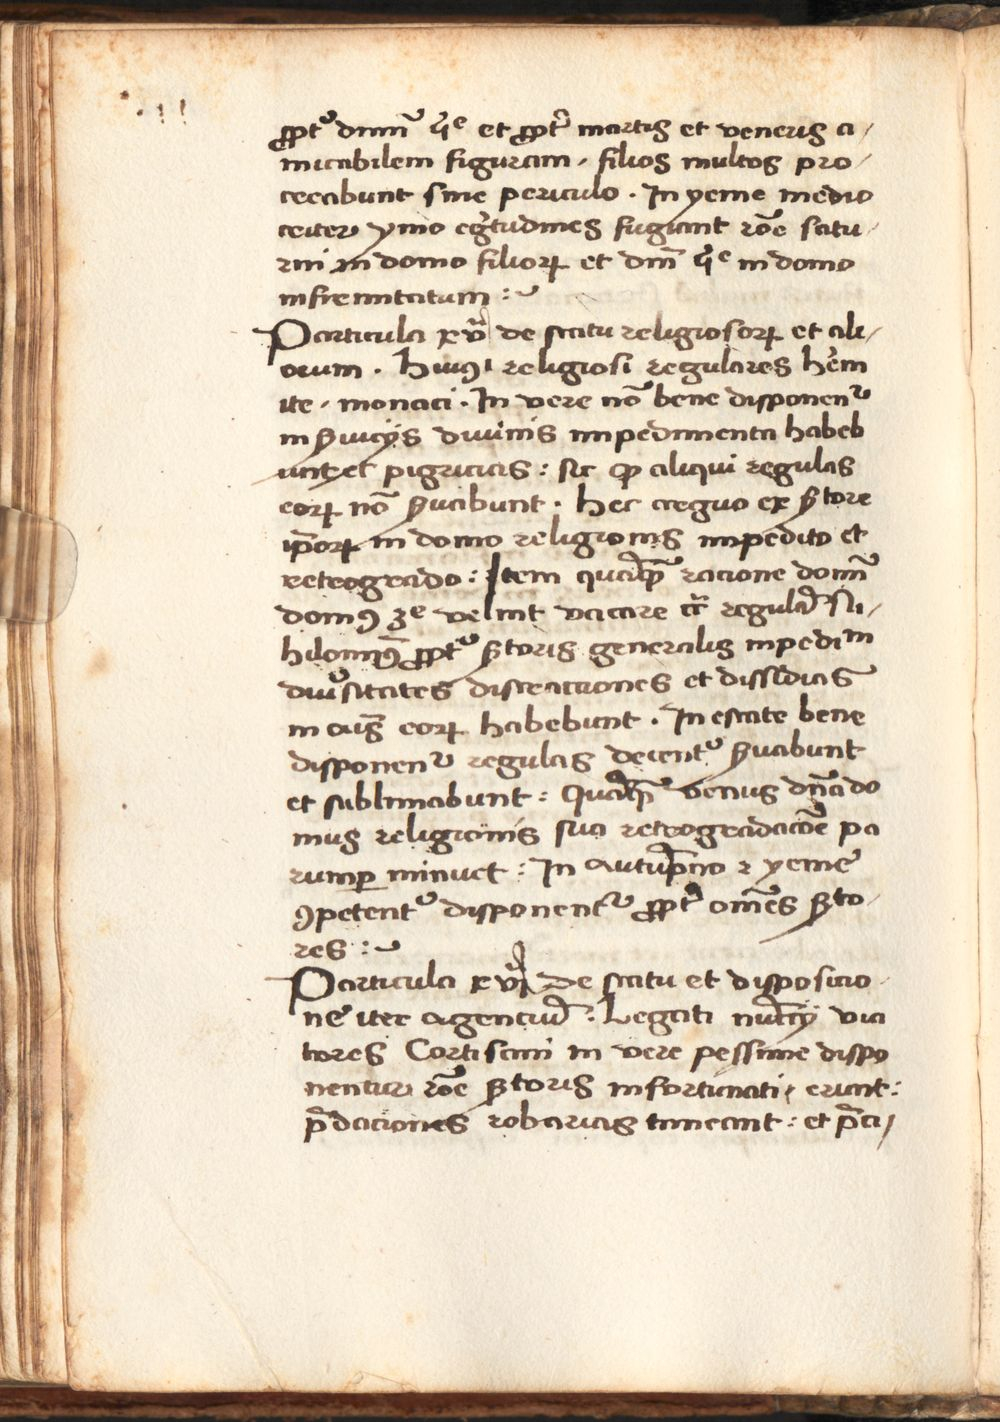 ꝓpt᷒ dnm̄ qͤ et ꝓpt̄ martis et veneris a⸗
micabilem figuram, filios multos pro⸗
creabunt sine periculo . In yeme medio
criter ymo egr̄tudines fugiant rōe satu⸗
rni in domo filioꝝ et dnm̄ qͤ in domo
infirmitatum :~
Particula xvͣ de statu religiosoꝝ et ali⸗
orum . Huiꝰ religiosi regulares her̄m
ite, monaci . In vere nō bene disponenᷣ
in ẜuicijs diuinis impedimenta habeb
unt et pigricias : sic ꝙ aliqui regulas
eoꝝ nō ẜuabunt . Hec arguo ex ẜtore
ip̄oꝝ in domo religionis impedito et
retrogrado : Item quāqꝫ racione domī
domꝰ 3ͤ velint vacare cr̄ regular̄ Ni⸗
hilomīꝰ ꝓpt᷒ ẜtoris generalis impedim̄
diu᷒sitates distractiones et dissēdias
in eoꝝ habebunt . In estate bene
disponenᷣ regulas decent᷒ ẜuabunt
et sublimabunt : Quāqꝫ venus dn̄a do
mus religionis sua retrogradacōe pa
rumꝑ minuet : In autūpno ⁊ yeme
ꝯpetent᷒ disponentᷣ ꝓpt̄ om̄es ẜto⸗
res :~
Particula xvjͣ De statu et disposicio⸗
ne iter agenciū . Legati nūcij via
tores Cortisani in vere pessime dispo
nentur rōe ẜtoris infortunati, erunt :
p̄daciones robarias timeant : et p̄ci⸗